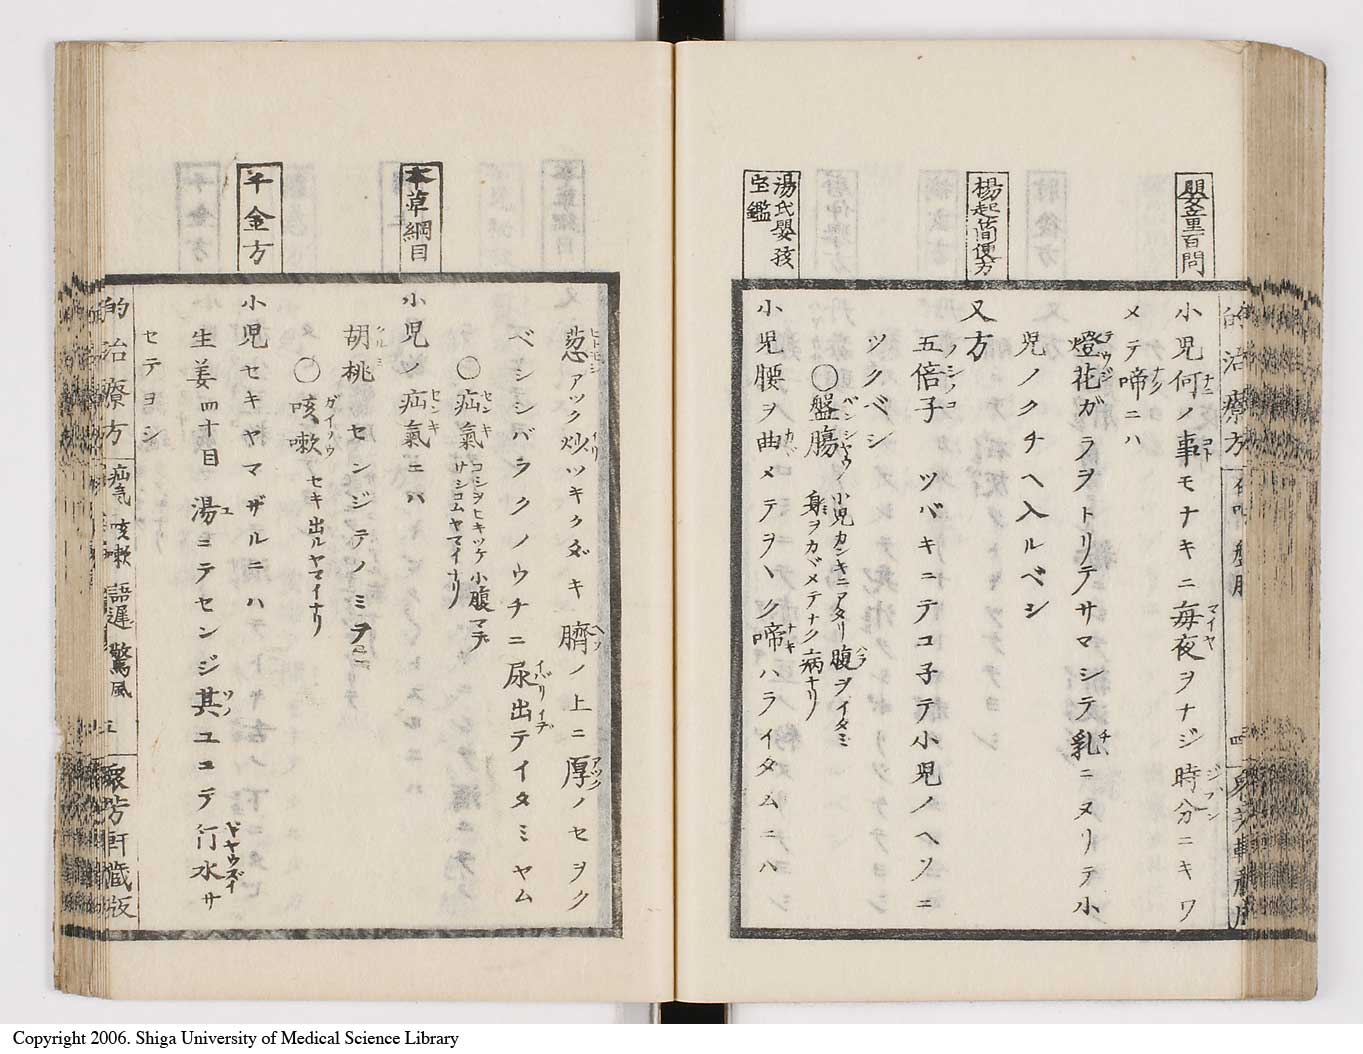 嬰童百問
小児何ノ事モナキニ毎夜ヲナジ時分ニキワ
メテ啼ニハ
燈花ガラヲトリテサマシテ乳ニヌリテ小
児ノクチヘ入ルベシ
楊起簡便方
又方
五倍子 ツバキニテコ子テ小児ノヘソニ
ツクベシ
○盤膓 小児カンキニアタリ腹ヲイタミ
身ヲカゞメテナク病ナリ
湯氏嬰孩
宝鑑
小児腰ヲ曲メテヲヽク啼ハライタムニハ
葱アツク炒ツキクダキ臍ノ上ニ厚ノセヲク
ベシシバラクノウチニ尿出テイタミヤム
○疝氣 コシヲヒキツケ小腹マデ
サシコムヤマイナリ
本草綱目
小児ノ疝氣ニハ
胡桃センジテノミテ
○咳嗽 セキ出ルヤマイナリ
千金方
小児セキヤマザルニハ
生姜四十目 湯ニテセンジ其ユニテ行水サ
セテヨシ
的治療方 疝氣 咳嗽 語遲 驚風 衆芳軒藏版
Copyright 2006. Shiga University of Medical Science Library